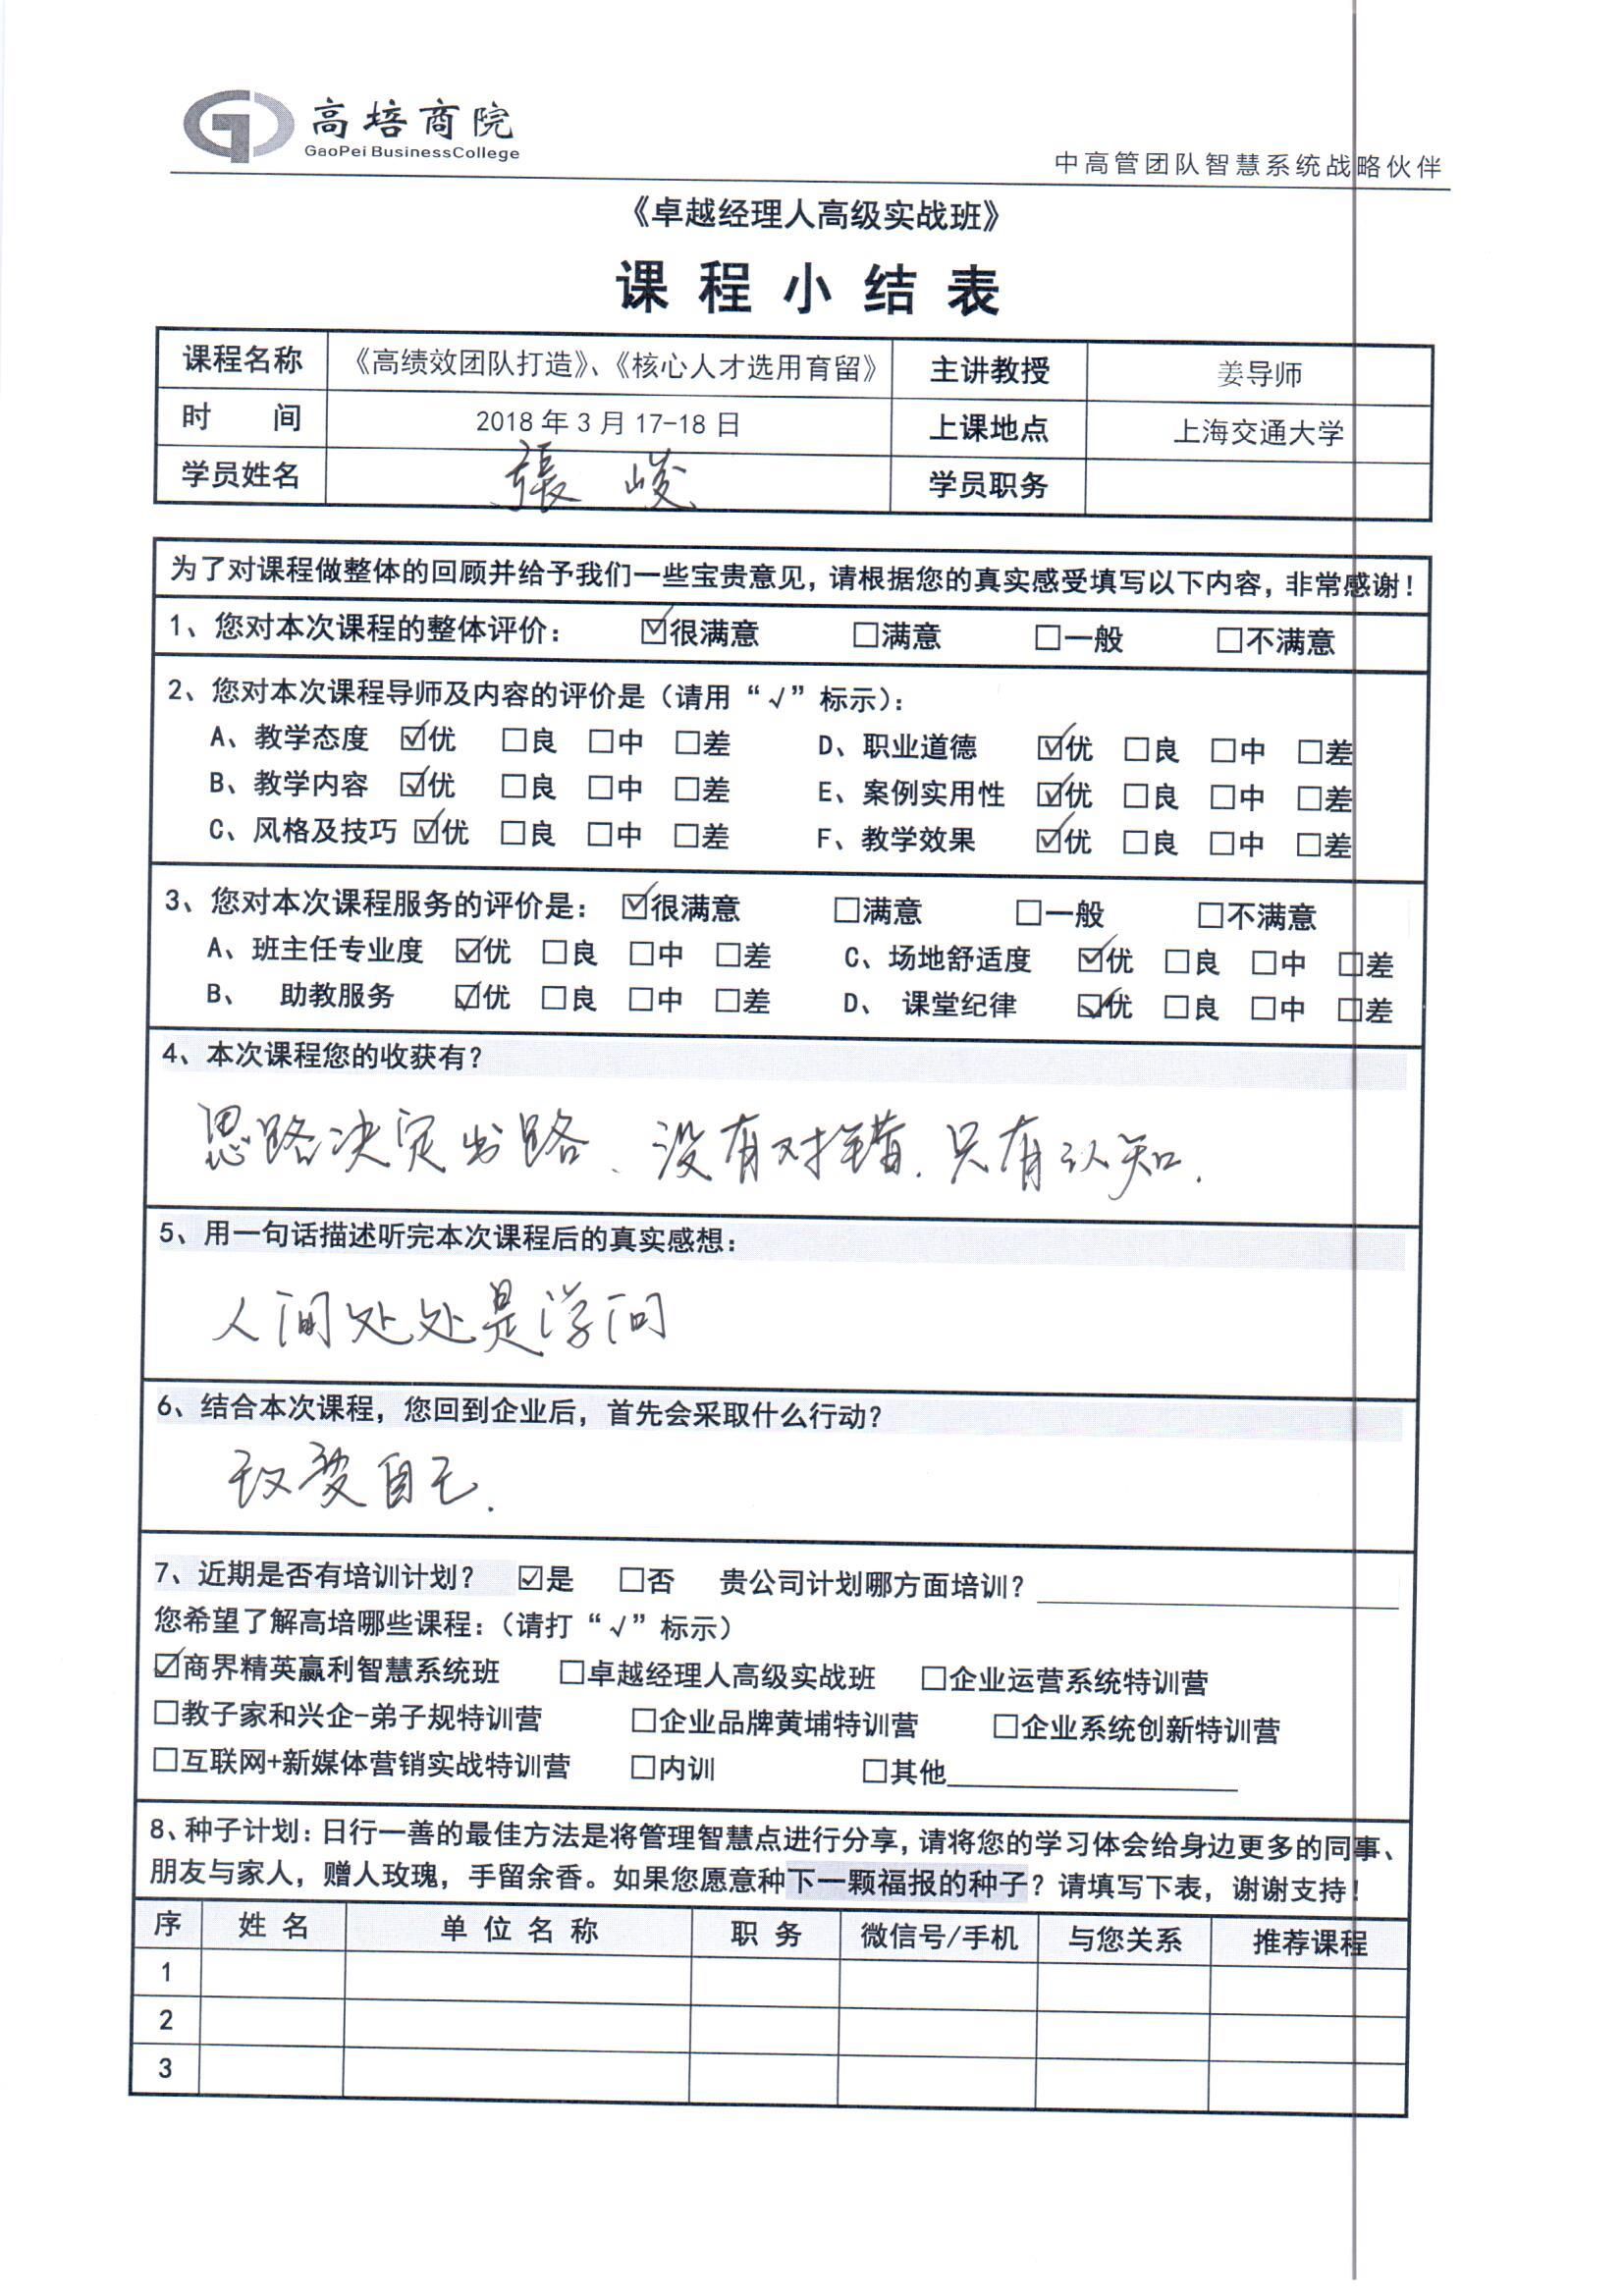 高培商院
GaoPei BusinessCollege
中高管团队智慧系统战略伙伴
《卓越经理人高级实战班》
课 程 小 结 表
课程名称 《高绩效团队打造》、《核心人才选用育留》 主讲教授 姜导师
时 间 2018 年 3 月 17-18 日 上课地点 上海交通大学
学员姓名 張 峻 学员职务
为了对课程做整体的回顾并给予我们一些宝贵意见，请根据您的真实感受填写以下内容，非常感谢！
1、您对本次课程的整体评价： ☑很满意 □满意 □一般 □不满意
2、您对本次课程导师及内容的评价是（请用“√”标示）：
A、教学态度 ☑优 □良 □中 □差 D、职业道德 ☑优 □良 □中 □差
B、教学内容 ☑优 □良 □中 □差 E、案例实用性 ☑优 □良 □中 □差
C、风格及技巧 ☑优 □良 □中 □差 F、教学效果 ☑优 □良 □中 □差
3、您对本次课程服务的评价是： ☑很满意 □满意 □一般 □不满意
A、班主任专业度 ☑优 □良 □中 □差 C、场地舒适度 ☑优 □良 □中 □差
B、 助教服务 ☑优 □良 □中 □差 D、 课堂纪律 ☑优 □良 □中 □差
4、本次课程您的收获有？
思路决定出路、没有对错.只有认知.
5、用一句话描述听完本次课程后的真实感想：
人间处处是学问
6、结合本次课程，您回到企业后，首先会采取什么行动？
改变自己.
7、近期是否有培训计划？ ☑是 □否 贵公司计划哪方面培训？
您希望了解高培哪些课程：（请打“√”标示）
☑商界精英赢利智慧系统班 □卓越经理人高级实战班 □企业运营系统特训营
□教子家和兴企-弟子规特训营 □企业品牌黄埔特训营 □企业系统创新特训营
□互联网+新媒体营销实战特训营 □内训 □其他
8、种子计划：日行一善的最佳方法是将管理智慧点进行分享，请将您的学习体会给身边更多的同事、
朋友与家人，赠人玫瑰，手留余香。如果您愿意种下一颗福报的种子？请填写下表，谢谢支持！
序 姓 名 单 位 名 称 职 务 微信号/手机 与您关系 推荐课程
1
2
3